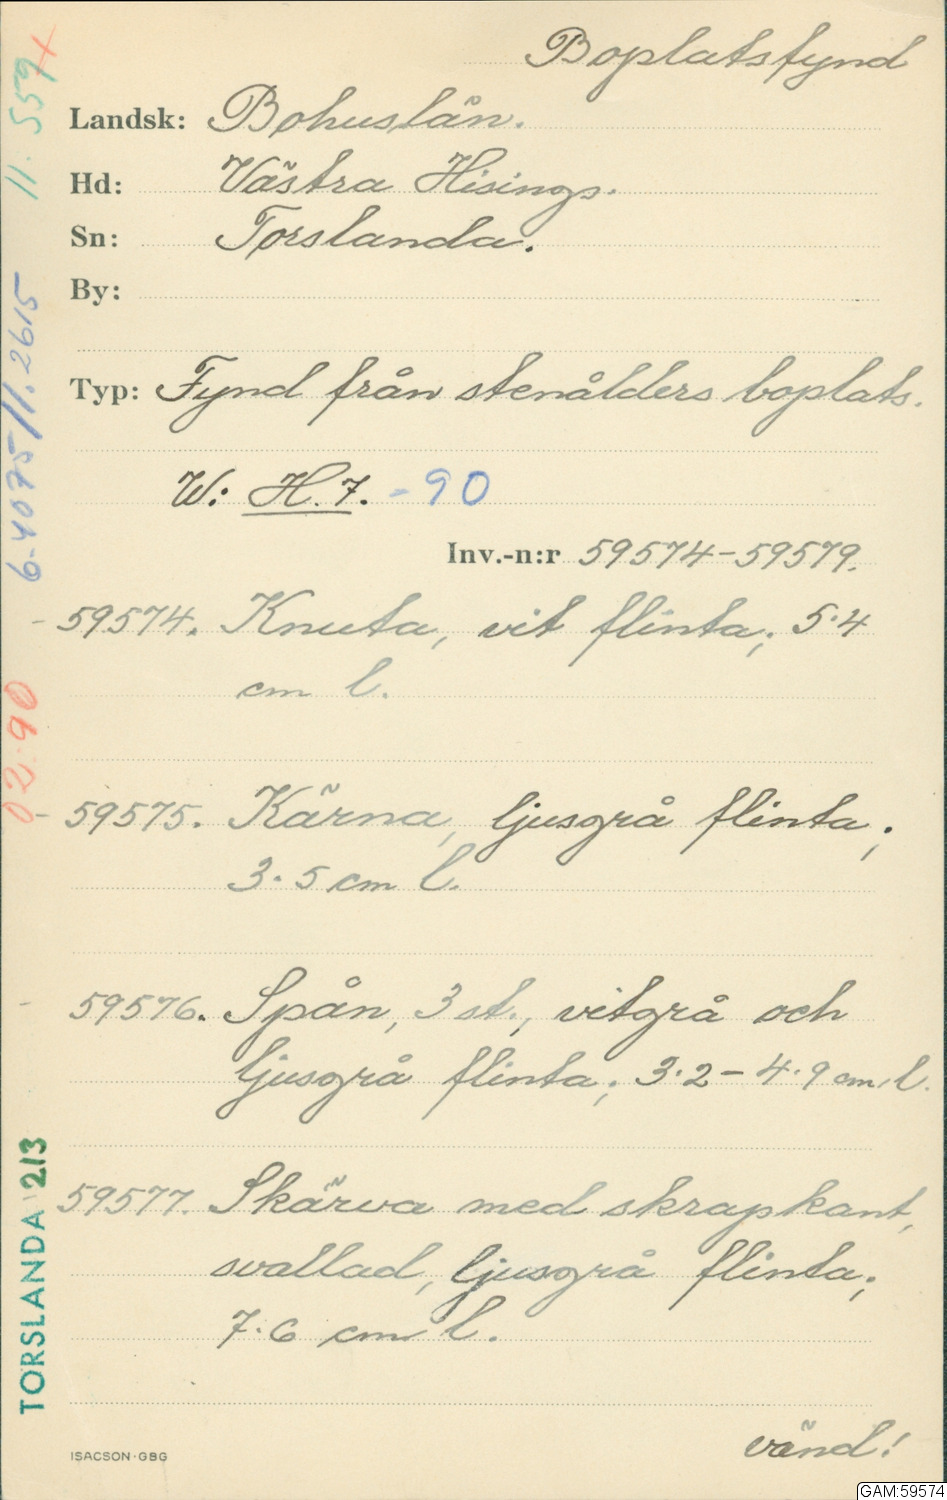 Boplatsfynd
Landsk: Bohuslän.
Hd: Västra Hisings.
Sn: Torslanda.
By:
Typ: Fynd från stenålders boplats.
W: H.7. - 90
Inv.-n:r 59574-59579.
59574. Knuta, vit flinta; 5.4
cm l.
59575. Kärna, ljusgrå flinta;
3.5 cm l.
59576. Spån, 3 st., vitgrå och
ljusgrå flinta; 3.2-4.9 cm. l.
59577. Skärva med skrapkant,
svallad, ljusgrå flinta;
7.6 cm l.
vänd!
ISACSON·GBG
TORSLANDA 213
02.90
11.559
GAM:59574